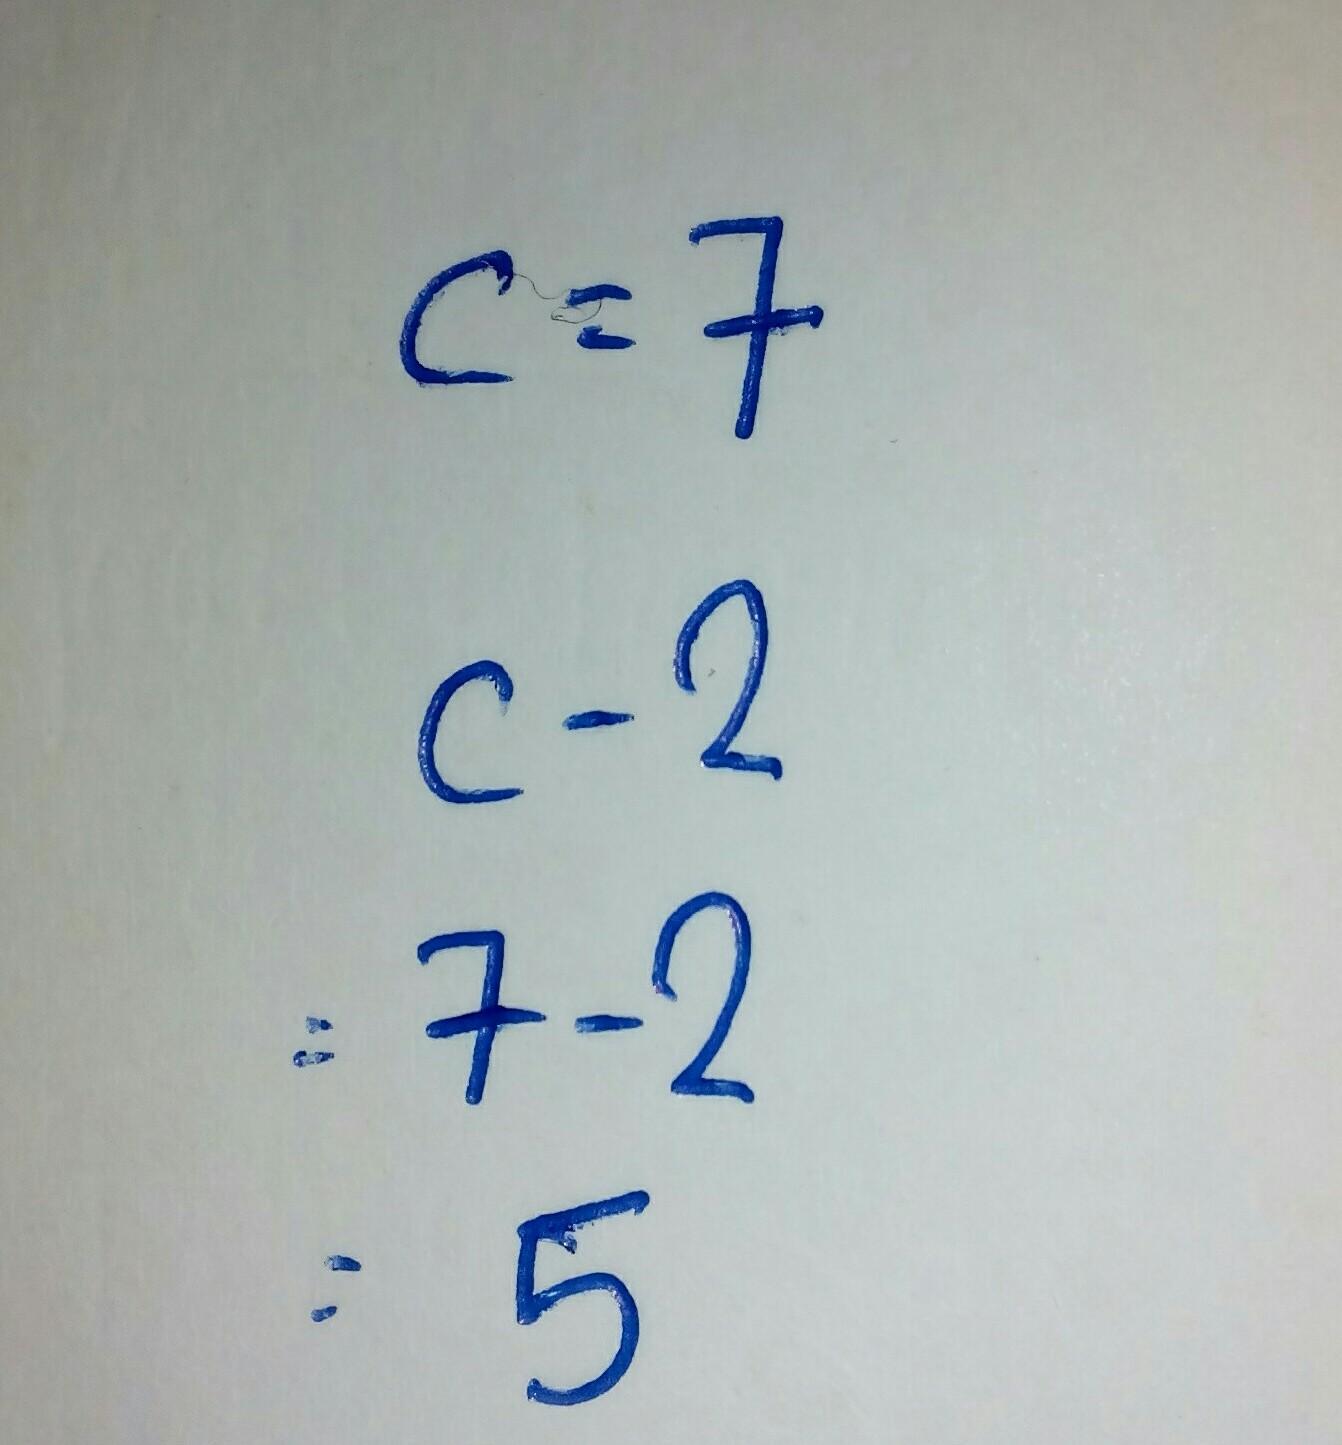 c = 7
c - 2
= 7 - 2
= 5